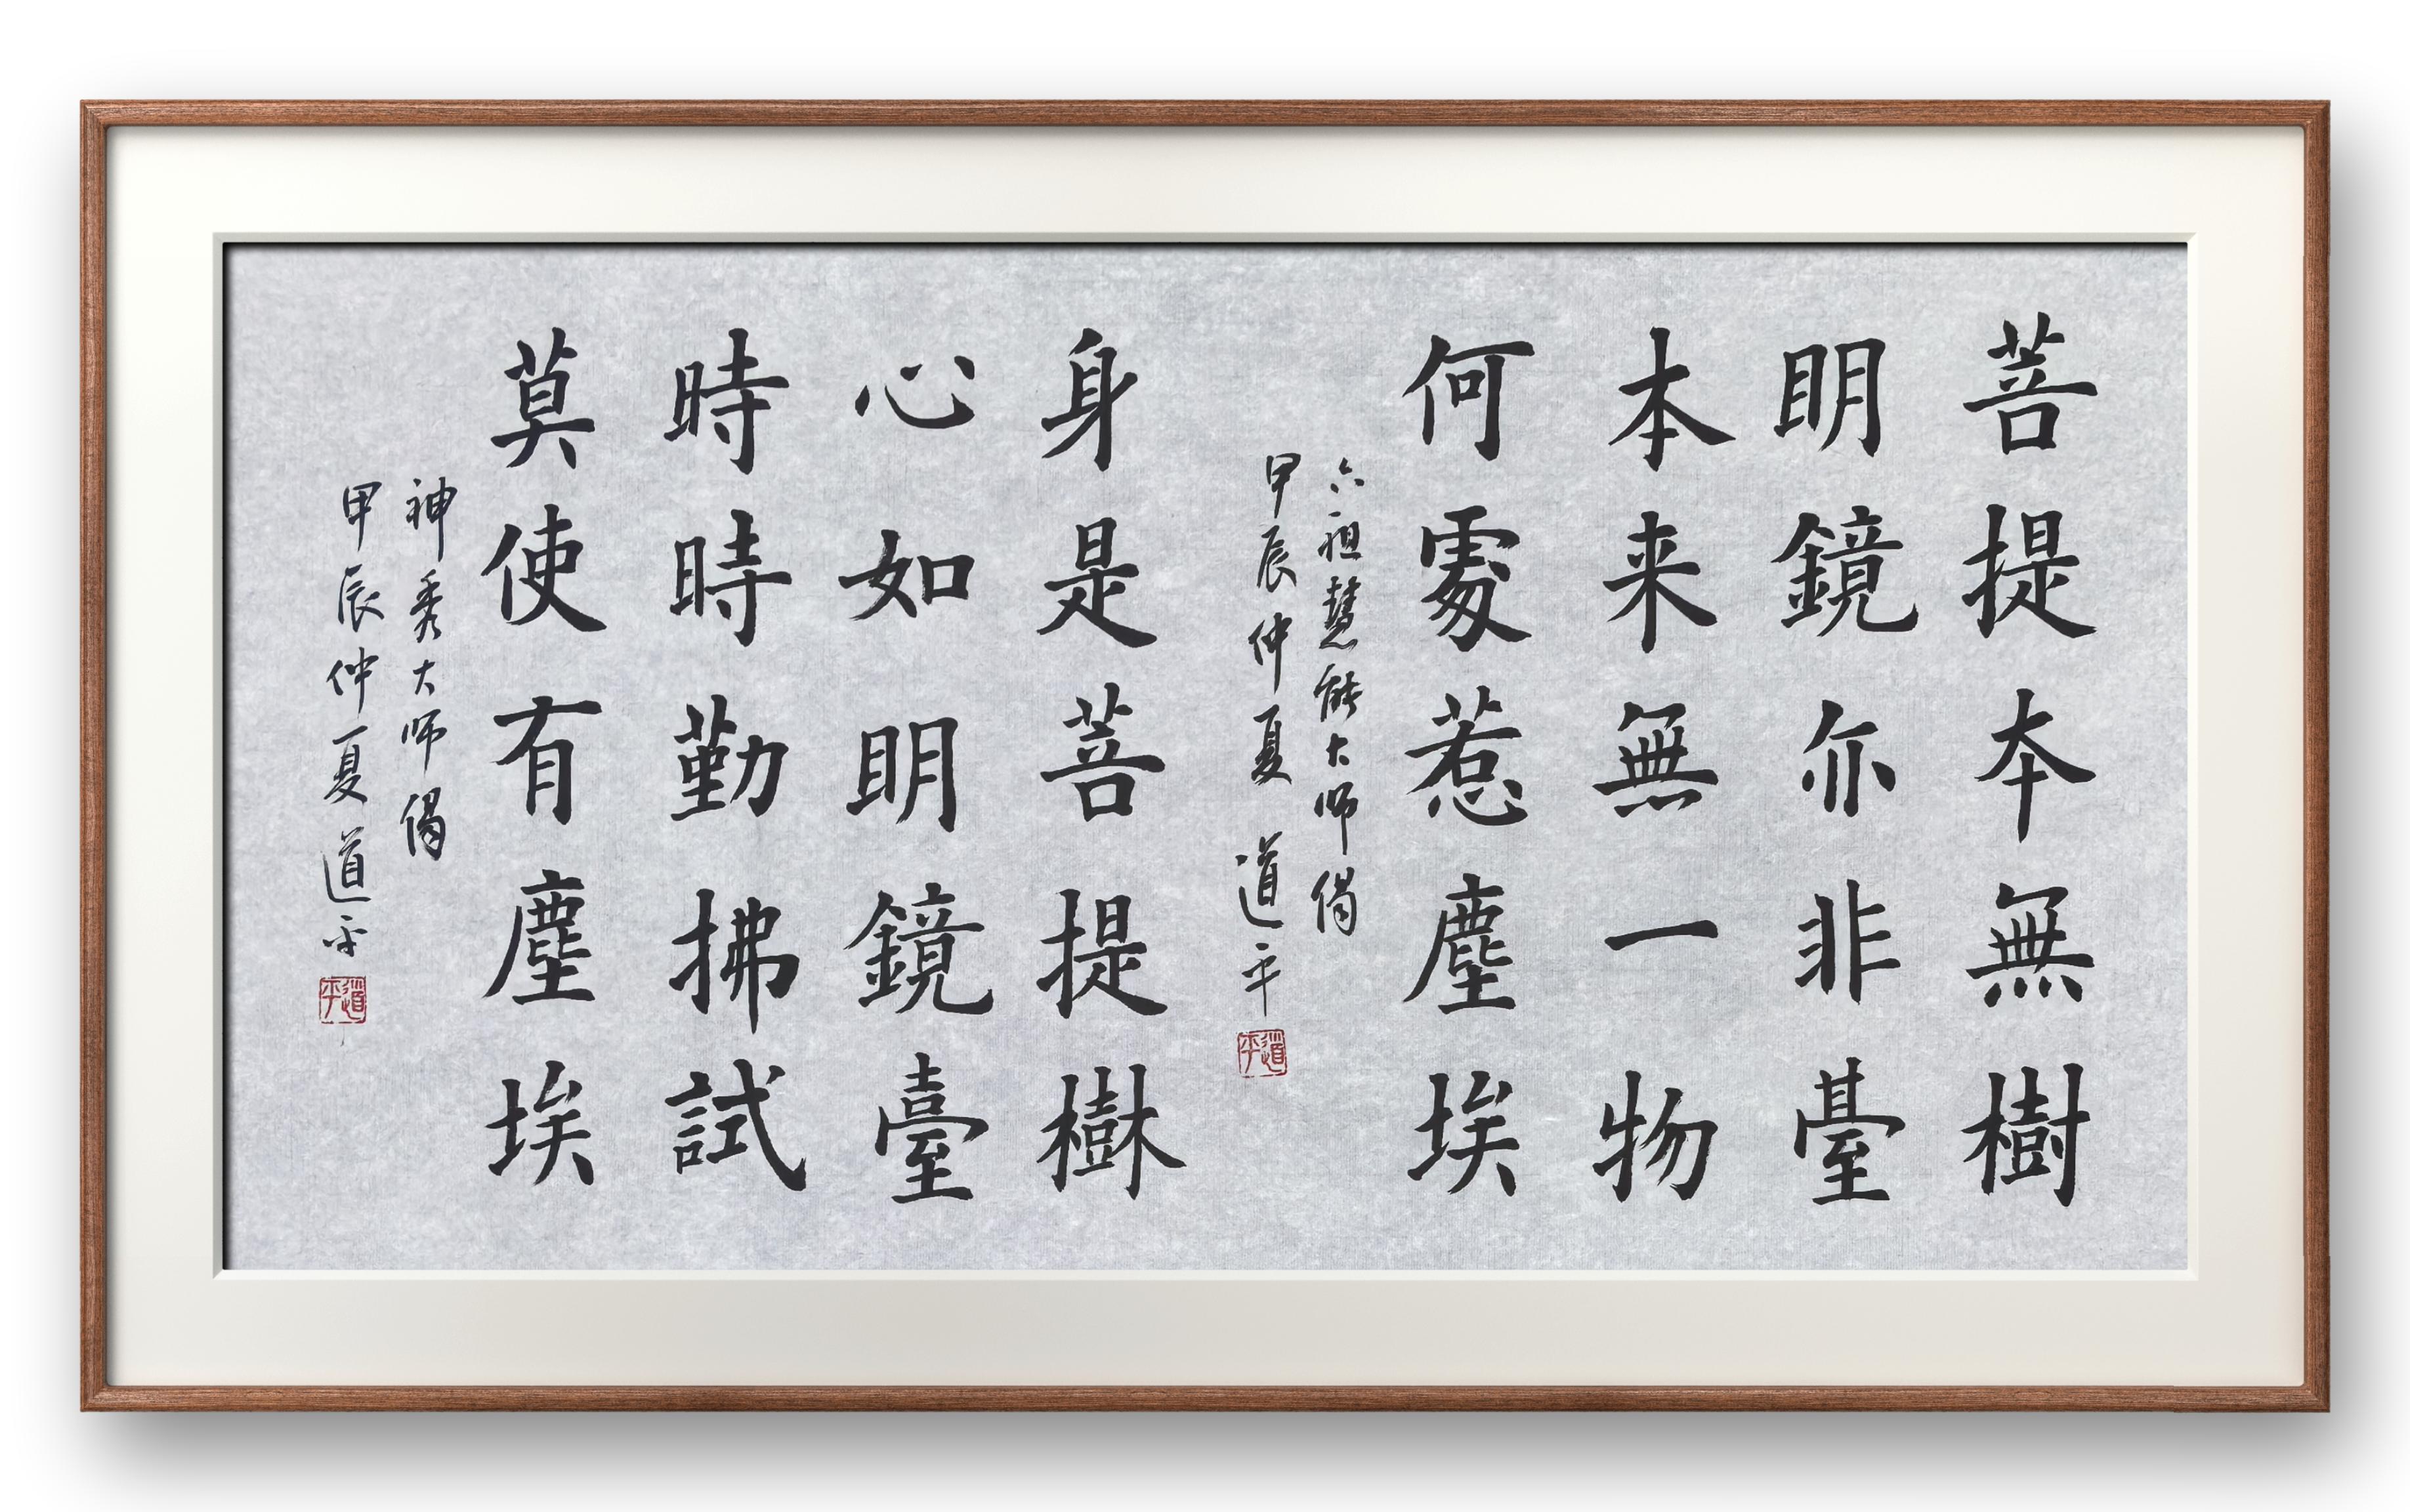 菩提本無樹
明鏡亦非臺
本来無一物
何處惹塵埃
六祖慧能大师偈
甲辰仲夏 道平
道平
身是菩提樹
心如明鏡臺
時時勤拂試
莫使有塵埃
神秀大师偈
甲辰仲夏 道平
道平